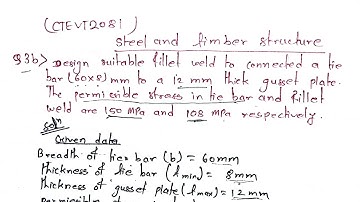 (CTEVT2081)
Steel and timber structure
Q3b) Design suitable fillet weld to connected a tie
bar (60x8) mm to a 12 mm thick gusset plate.
The permissible stress in tie bar and fillet
weld are 150 MPa and 108 MPa respectively.
Solⁿ
Given data
Breadth of tie bar (b) = 60mm
thickness of tie bar (tmin) = 8mm
thickness of gusset plate (tmax) = 12mm